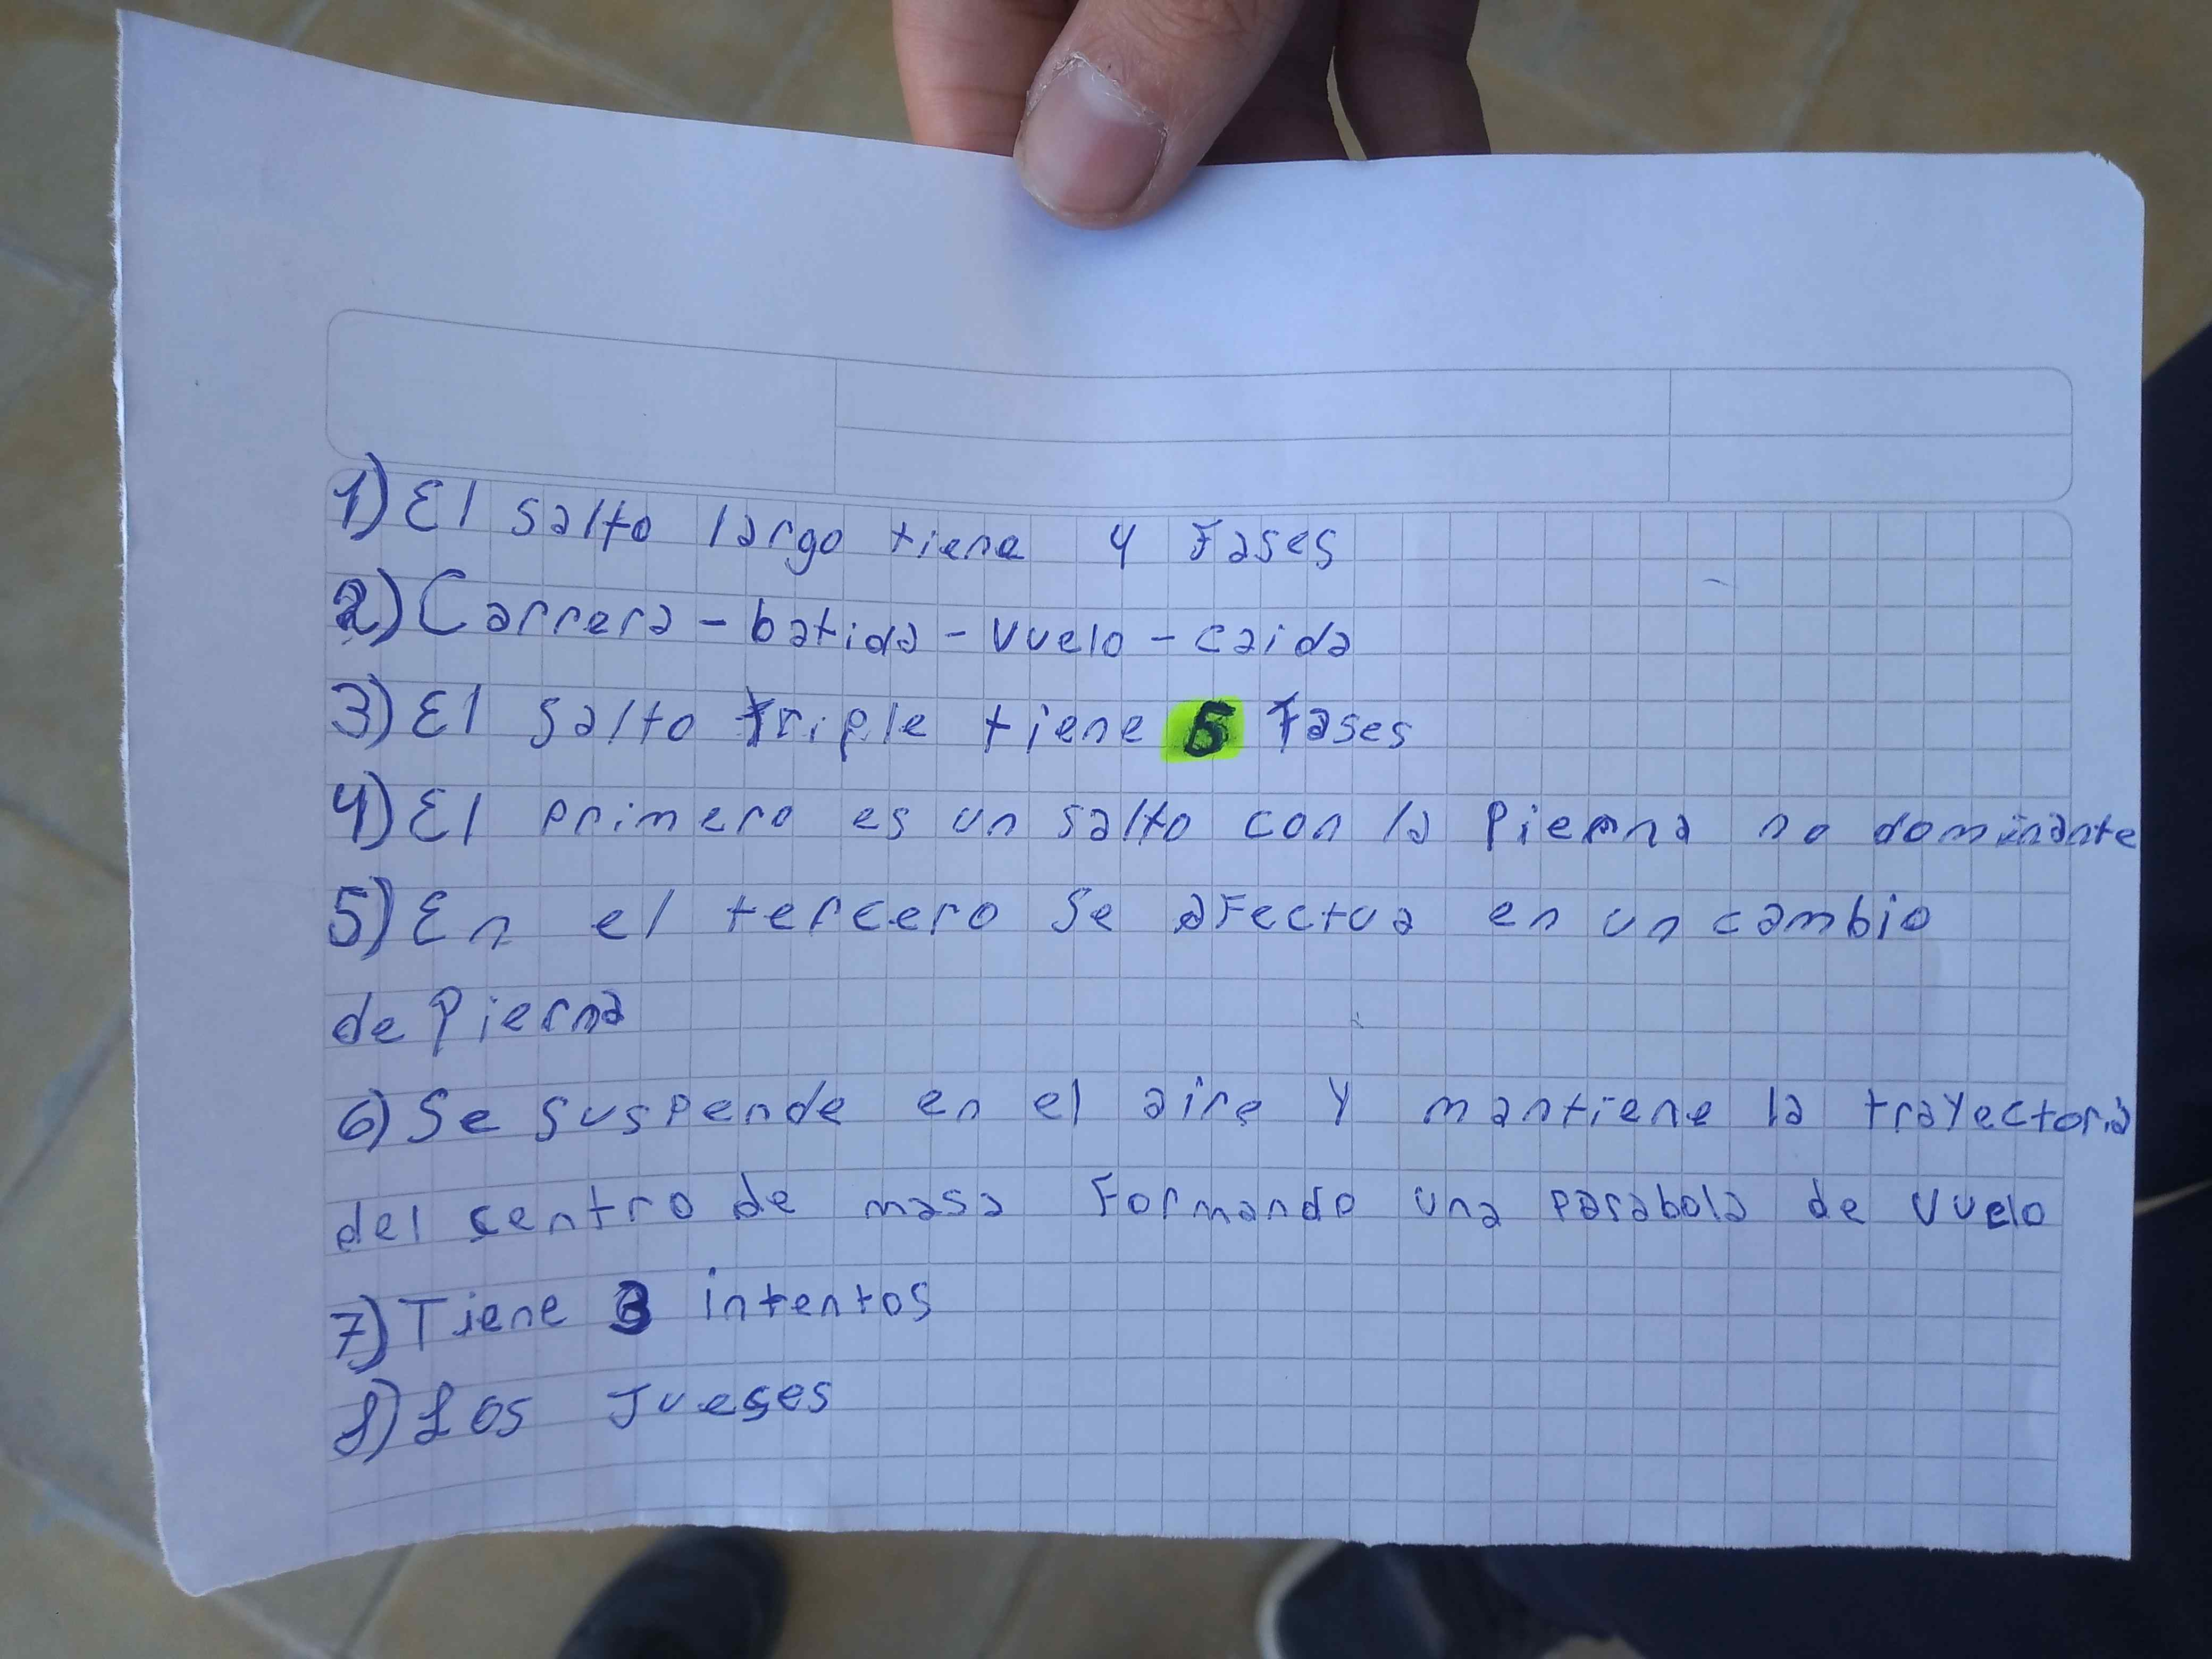 1) El salto largo tiene 4 Fases
2) Carrera - batida - vuelo - caida
3) El salto triple tiene 5 fases
4) El primero es un salto con la pierna no dominante
5) En el tercero se afectua en un cambio
de pierna
6) Se suspende en el aire y mantiene la trayectoria
del centro de masa Formando una parabola de vuelo
7) Tiene 3 intentos
8) Los Jueses